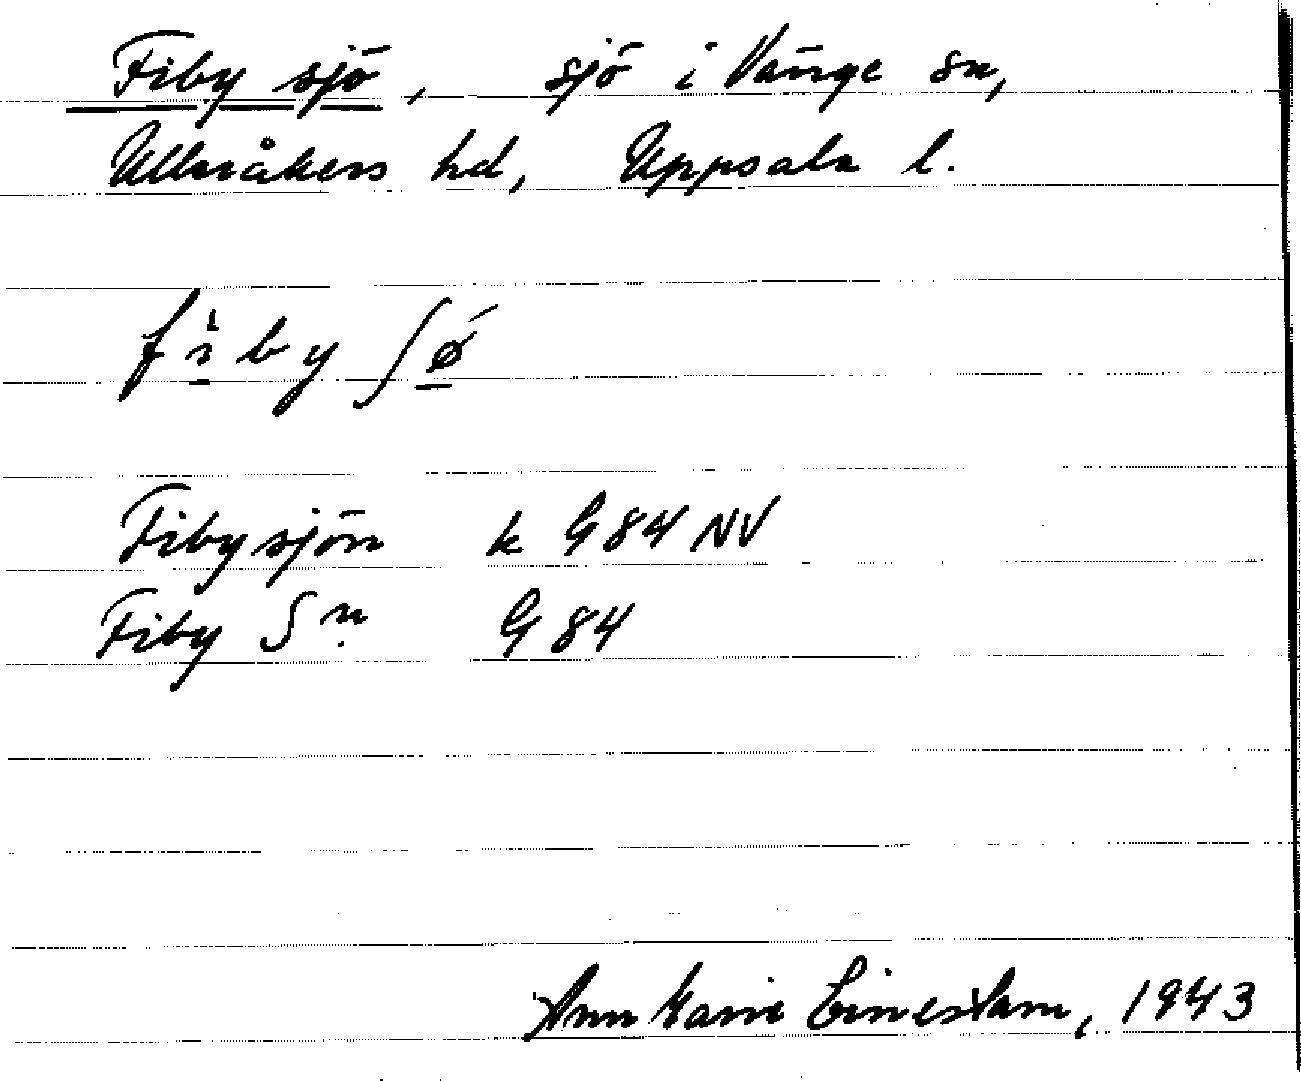 Fiby sjö, sjö i Vänge sn,
Ulleråkers hd, Uppsala l.
fìby ʃǿ
Fibysjön k G 84 NV
Fiby Sn G 84
Ann Marie 1943